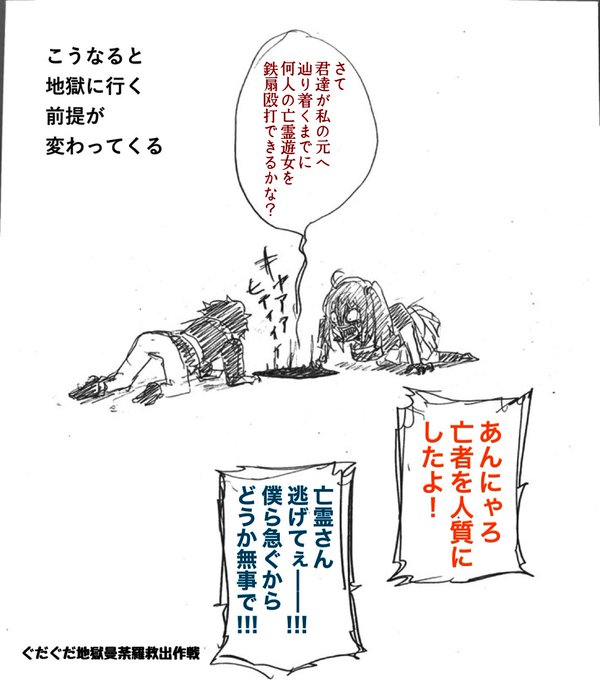 こうなると
地獄に行く
前提が
変わってくる
さて
君達が私の元へ
辿り着くまでに
何人の亡霊遊女を
鉄扇殴打できるかな？
キャアアア
ヒィィィィ
あんにゃろ
亡者を人質に
したよ！
亡霊さん
逃げてぇ――!!!
僕ら急ぐから
どうか無事で!!!
ぐだぐだ地獄曼荼羅救出作戦